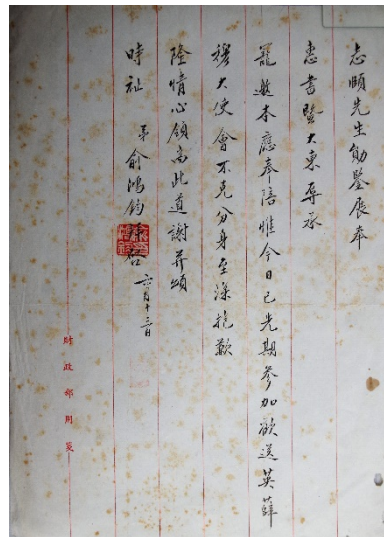 志頤先生勛鑒展奉
惠書暨大柬辱承
寵邀本應奉陪惟今日已先期參加歡送英薛
穆大使會不克分身至深抱歉
隆情心領耑此道謝并頌
時祉 弟俞鴻鈞 六月十三日
財政部用箋